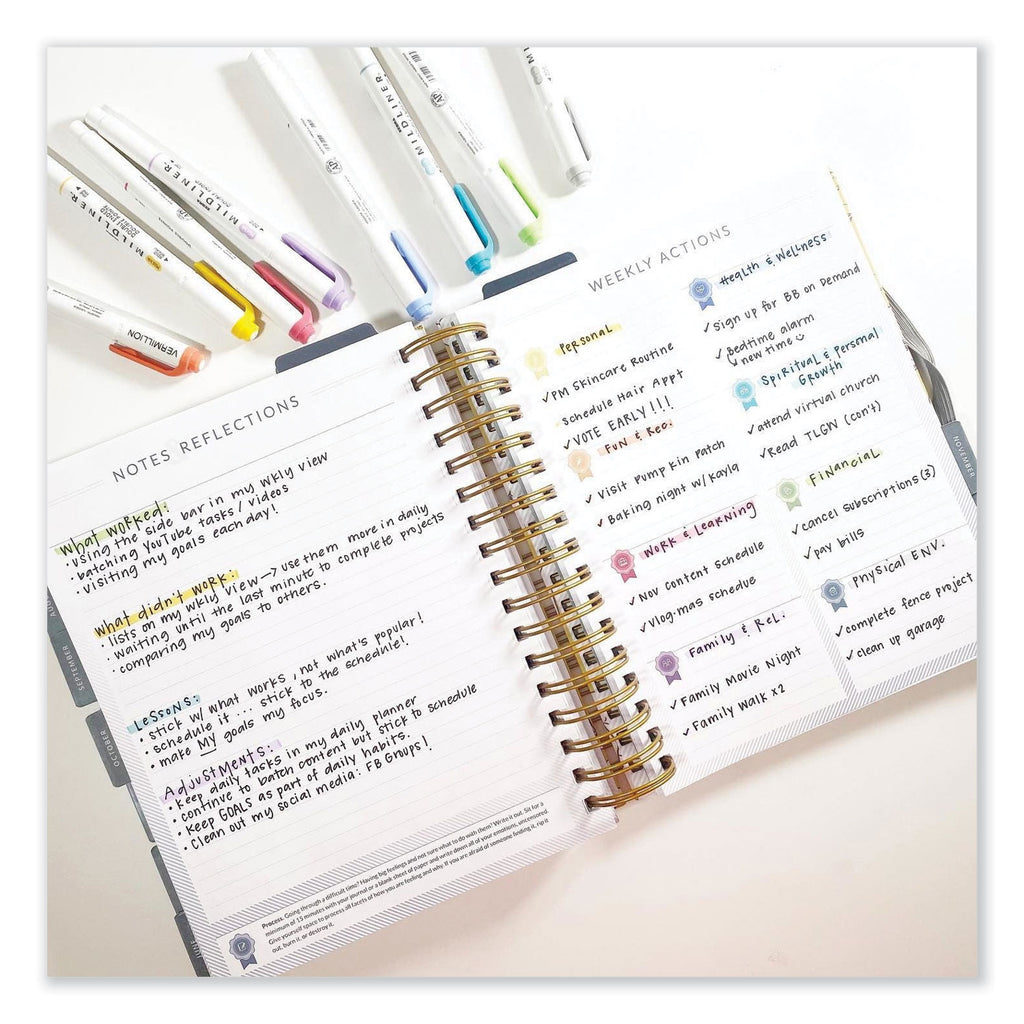 MILDLINER
DOUBLE ENDED
MILDLINER
DOUBLE ENDED
MILDLINER
ZEBRA
MILDLINER
VERMILLION
NOTES REFLECTIONS
What worked:
• using the side bar in my wkly view
• batching YouTube tasks / videos
• visiting my goals each day!
What didn't work:
• lists on my wkly view → use them more in daily
• waiting until the last minute to complete projects
• comparing my goals to others.
Lessons:
• stick w/ what works, not what's popular!
• schedule it ... stick to the schedule!
• make MY goals my focus.
Adjustments:
• Keep daily tasks in my daily planner
• continue to batch content but stick to schedule
• Keep GOALS as part of daily habits.
• Clean out my social media: FB Groups!
Process. Going through a difficult time? Having big feelings and not sure what to do with them? Write it out. Sit for a
minimum of 15 minutes with your journal or a blank sheet of paper and write down all of your emotions, uncensored.
Give yourself space to process all facets of how you are feeling and why. If you are afraid of someone finding it, rip it
out, burn it, or destroy it.
AUG
SEPTEMBER
OCTOBER
JUNE
WEEKLY ACTIONS
Personal
✓ PM Skincare Routine
schedule Hair Appt
✓ VOTE EARLY!!!
Fun & Rec.
✓ visit pumpkin patch
✓ Baking night w/ Kayla
Work & Learning
✓ Nov content schedule
✓ Vlog-mas schedue
Family & Rel.
✓ Family Movie Night
✓ Family walk x2
Health & Wellness
✓ sign up for BB on Demand
✓ Bedtime alarm
↳ new time
Spiritual & Personal
Growth
✓ attend virtual church
✓ Read TLGW (con't)
Financial
✓ cancel subscriptions (3)
✓ pay bills
Physical ENV.
✓ complete fence project
✓ clean up garage
NOVEMBER